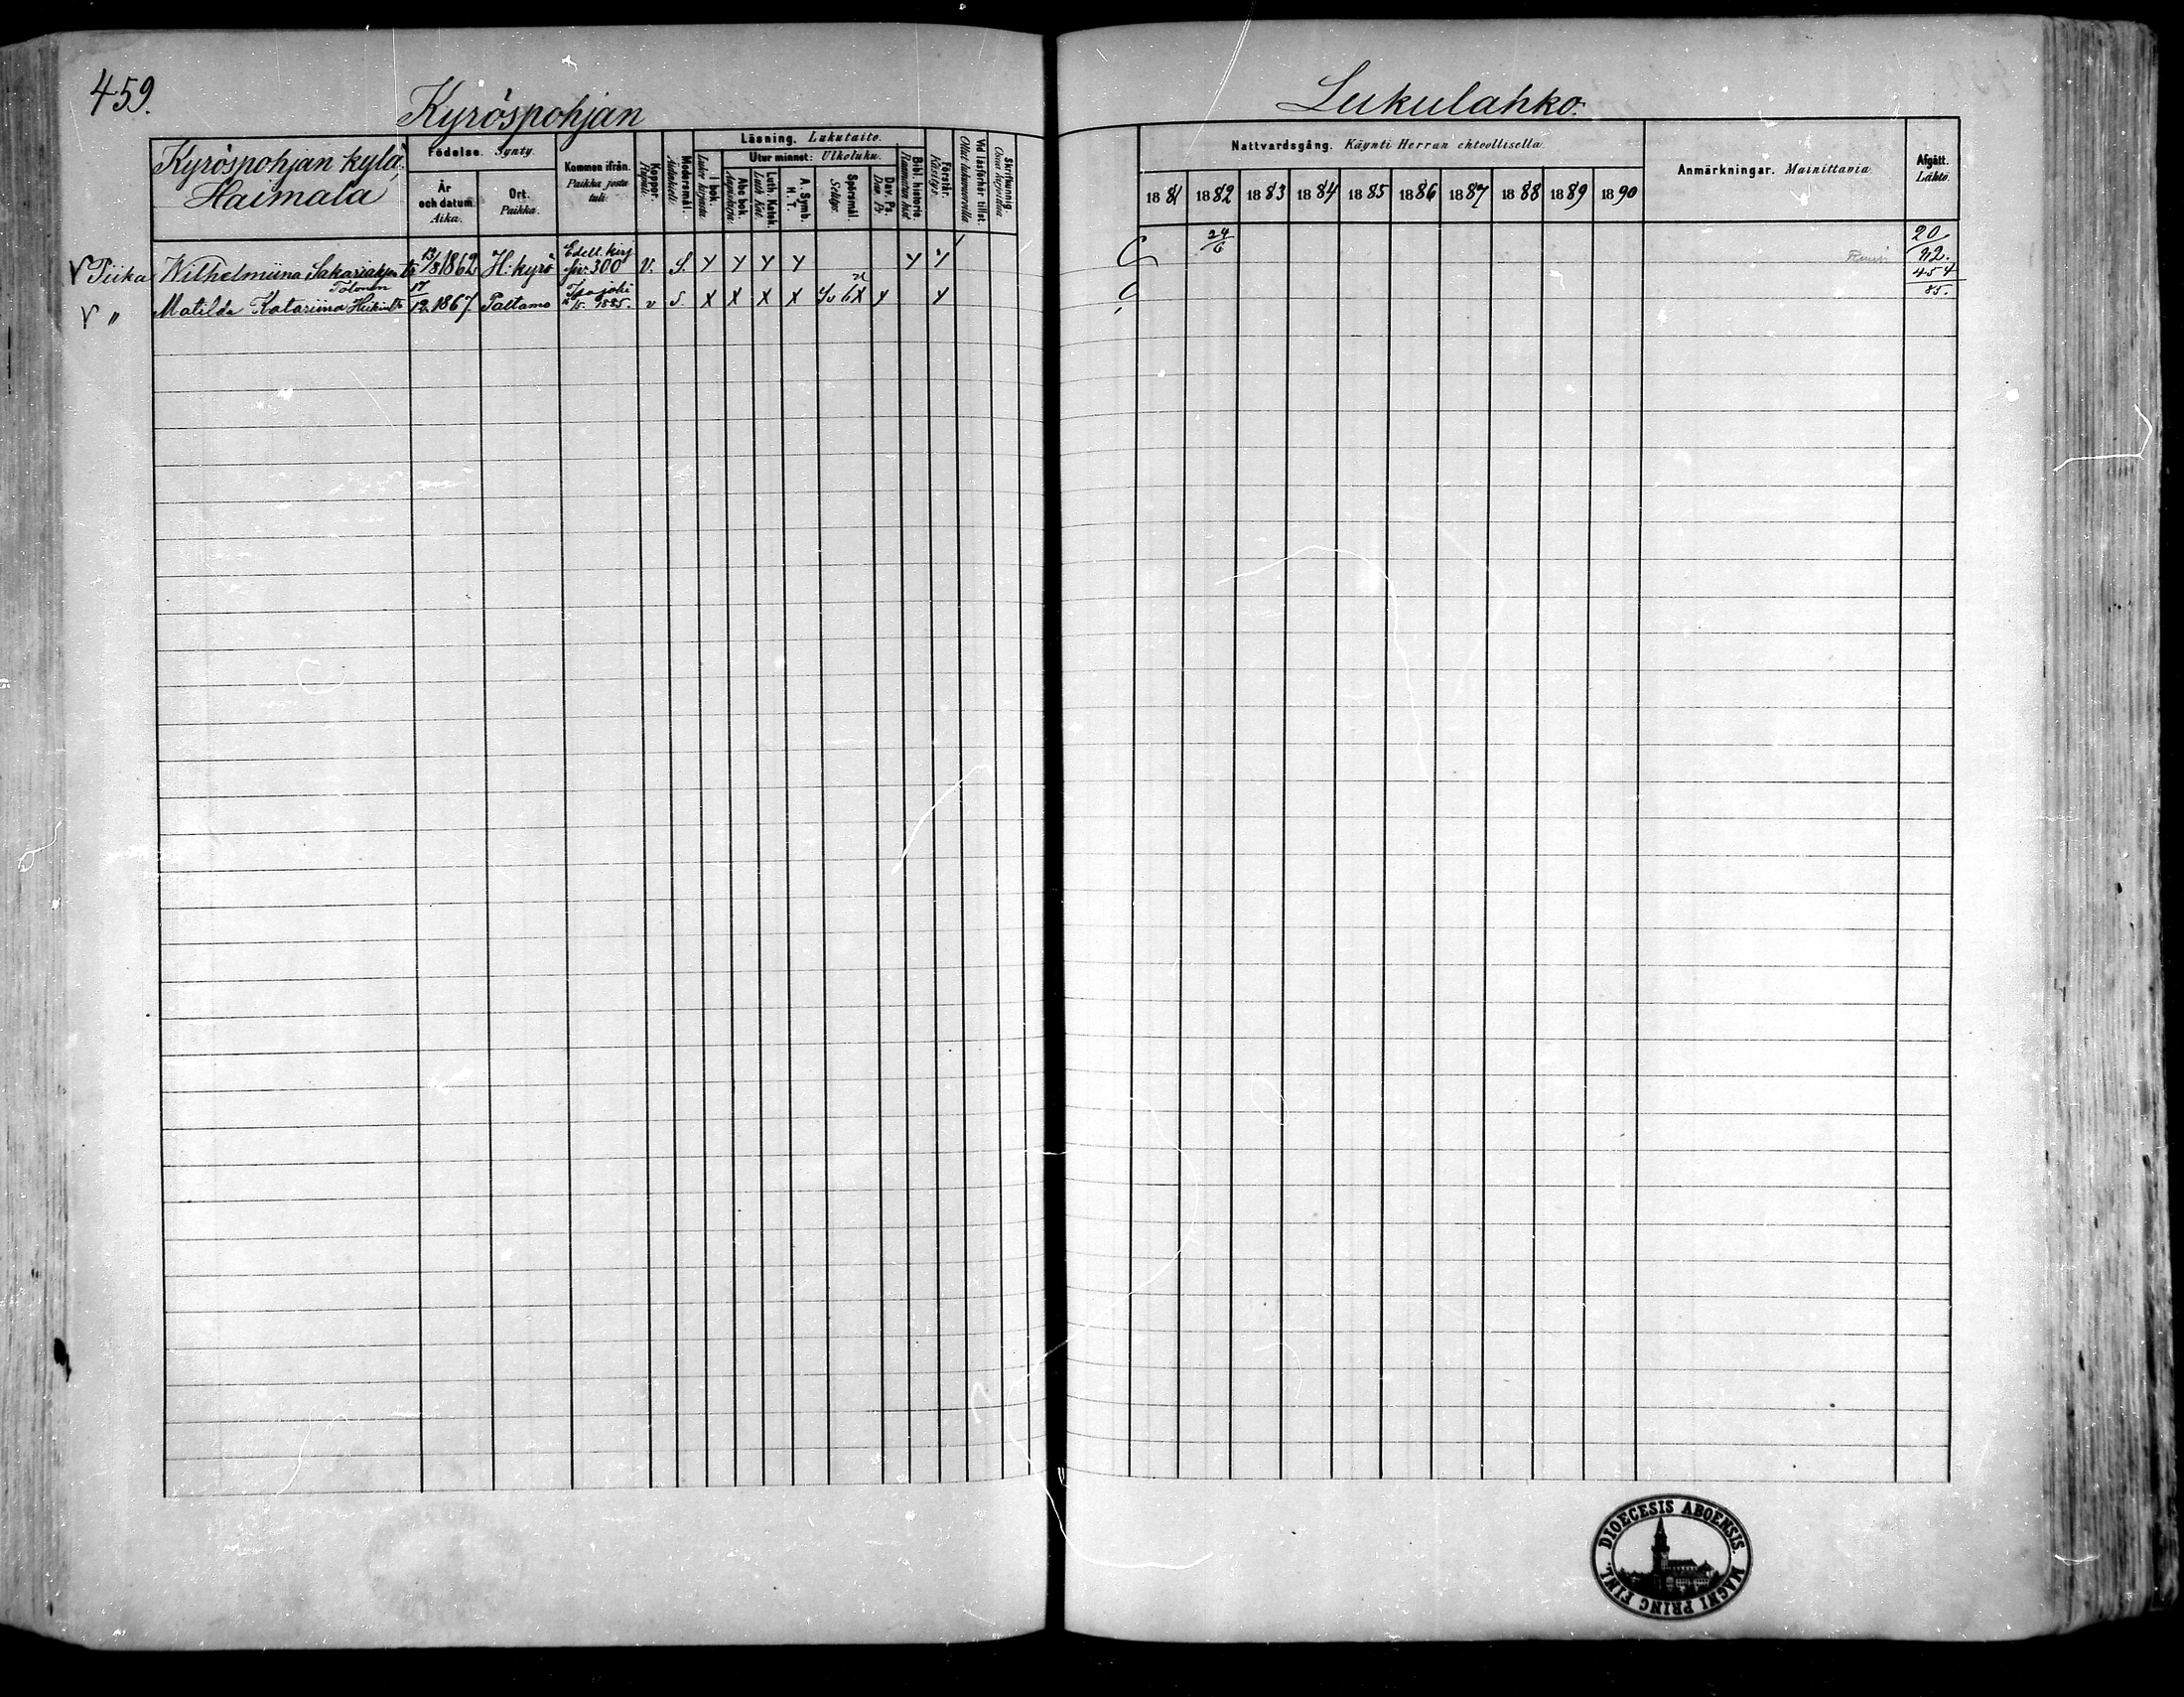 459.
Kyröspohjan
Lukulahko.
Kyröspohjan kylä,
Haimala
Födelse. Synty.
År
och datum.
Aika.
Ort.
Paikka.
Kommen ifrån.
Paikka josta
tuli.
Koppor.
Rupuli.
Modersmål.
Äidinkieli.
Läsning. Lukutaito.
I bok.
Luku kirjasta.
Utur minnet: Ulkoluku.
Abc bok.
Aapiskirja.
Luth. Katek.
Luth. Kat.
A. Symb.
H. T.
Spörsmål
Selitys.
Dav. Ps.
Dav. Ps.
Bibl. historie
Raamatun hist.
Förstår.
Käsitys.
Vid läsförhör tillst.
Ollut lukuvuorolla
Skrifkunnig.
Osaa kirjoittaa
Nattvardsgång. Käynti Herran ehtoollisella.
1881 1882 1883 1884 1885 1886 1887 1888 1889 1890
Anmärkningar. Mainittavia
Afgått.
Lähtö.
V Piika Wilhelmiina Sakariaktytr 13/8 1862 H: kyrö Edell. kirj siv. 300 V. S. Y Y Y Y Y Y 24/6 20/82.
Tolonen
V " Matilda Katariina Heikint 17/12 1867. Paltamo Isojoki 1885. v S. X X X X Y 454/85.
DIOECESIS ABOENSIS. MAGNI PRINC FINL.